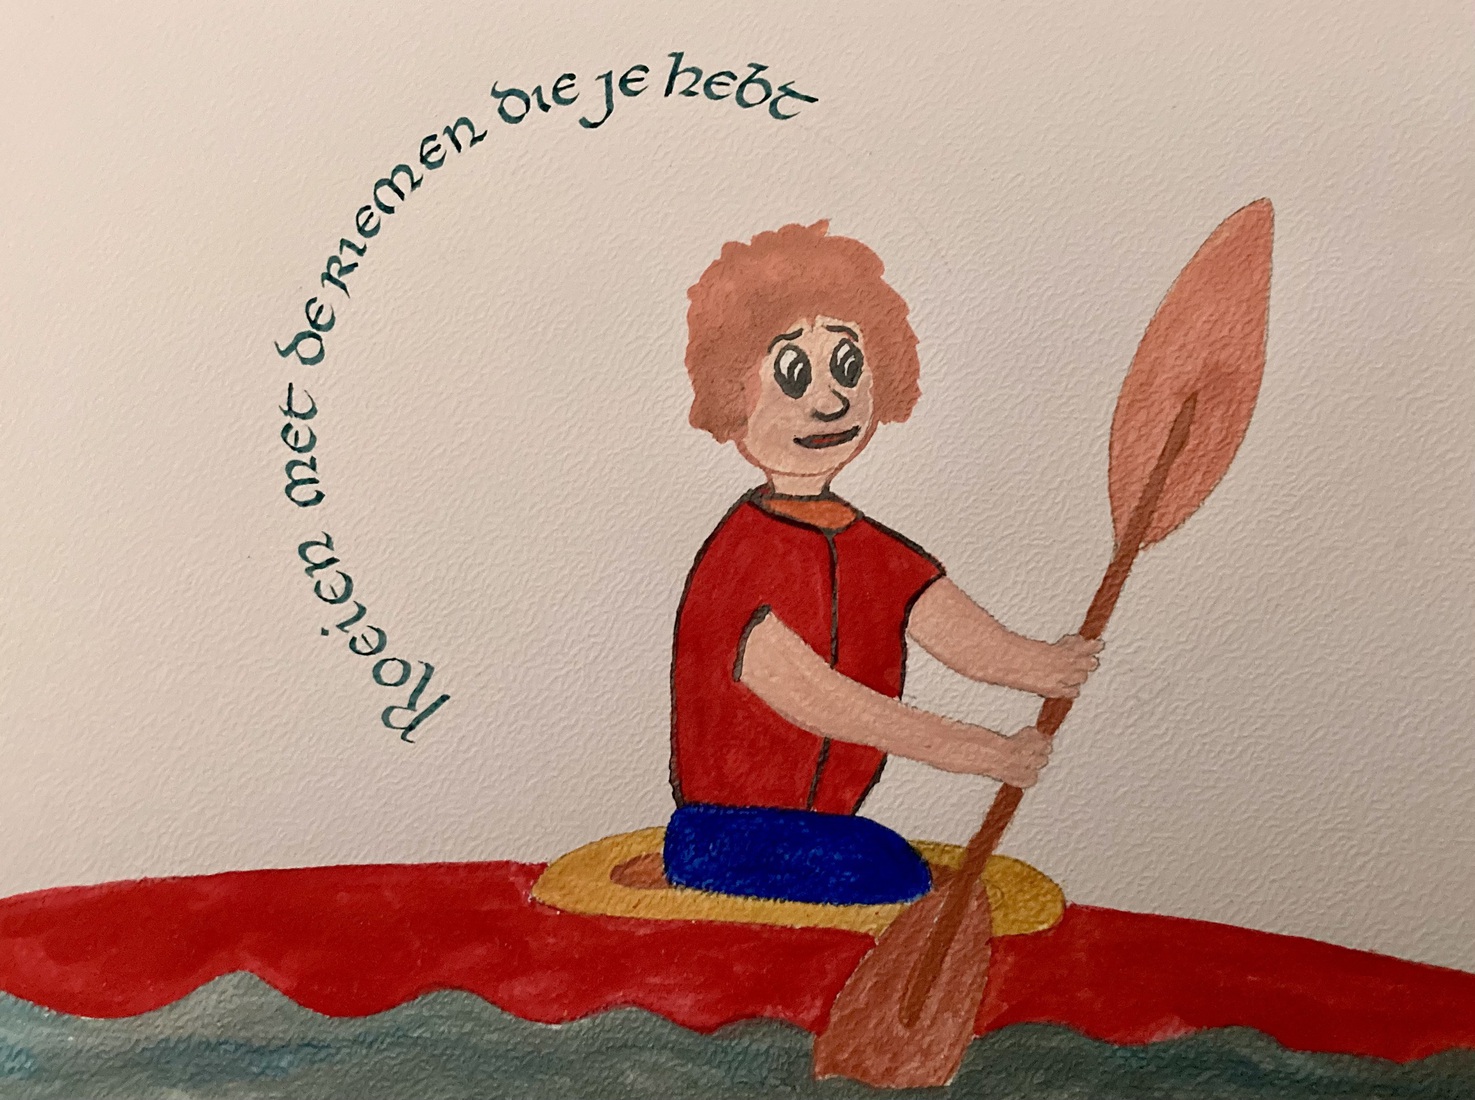 Roeien met de riemen die je hebt